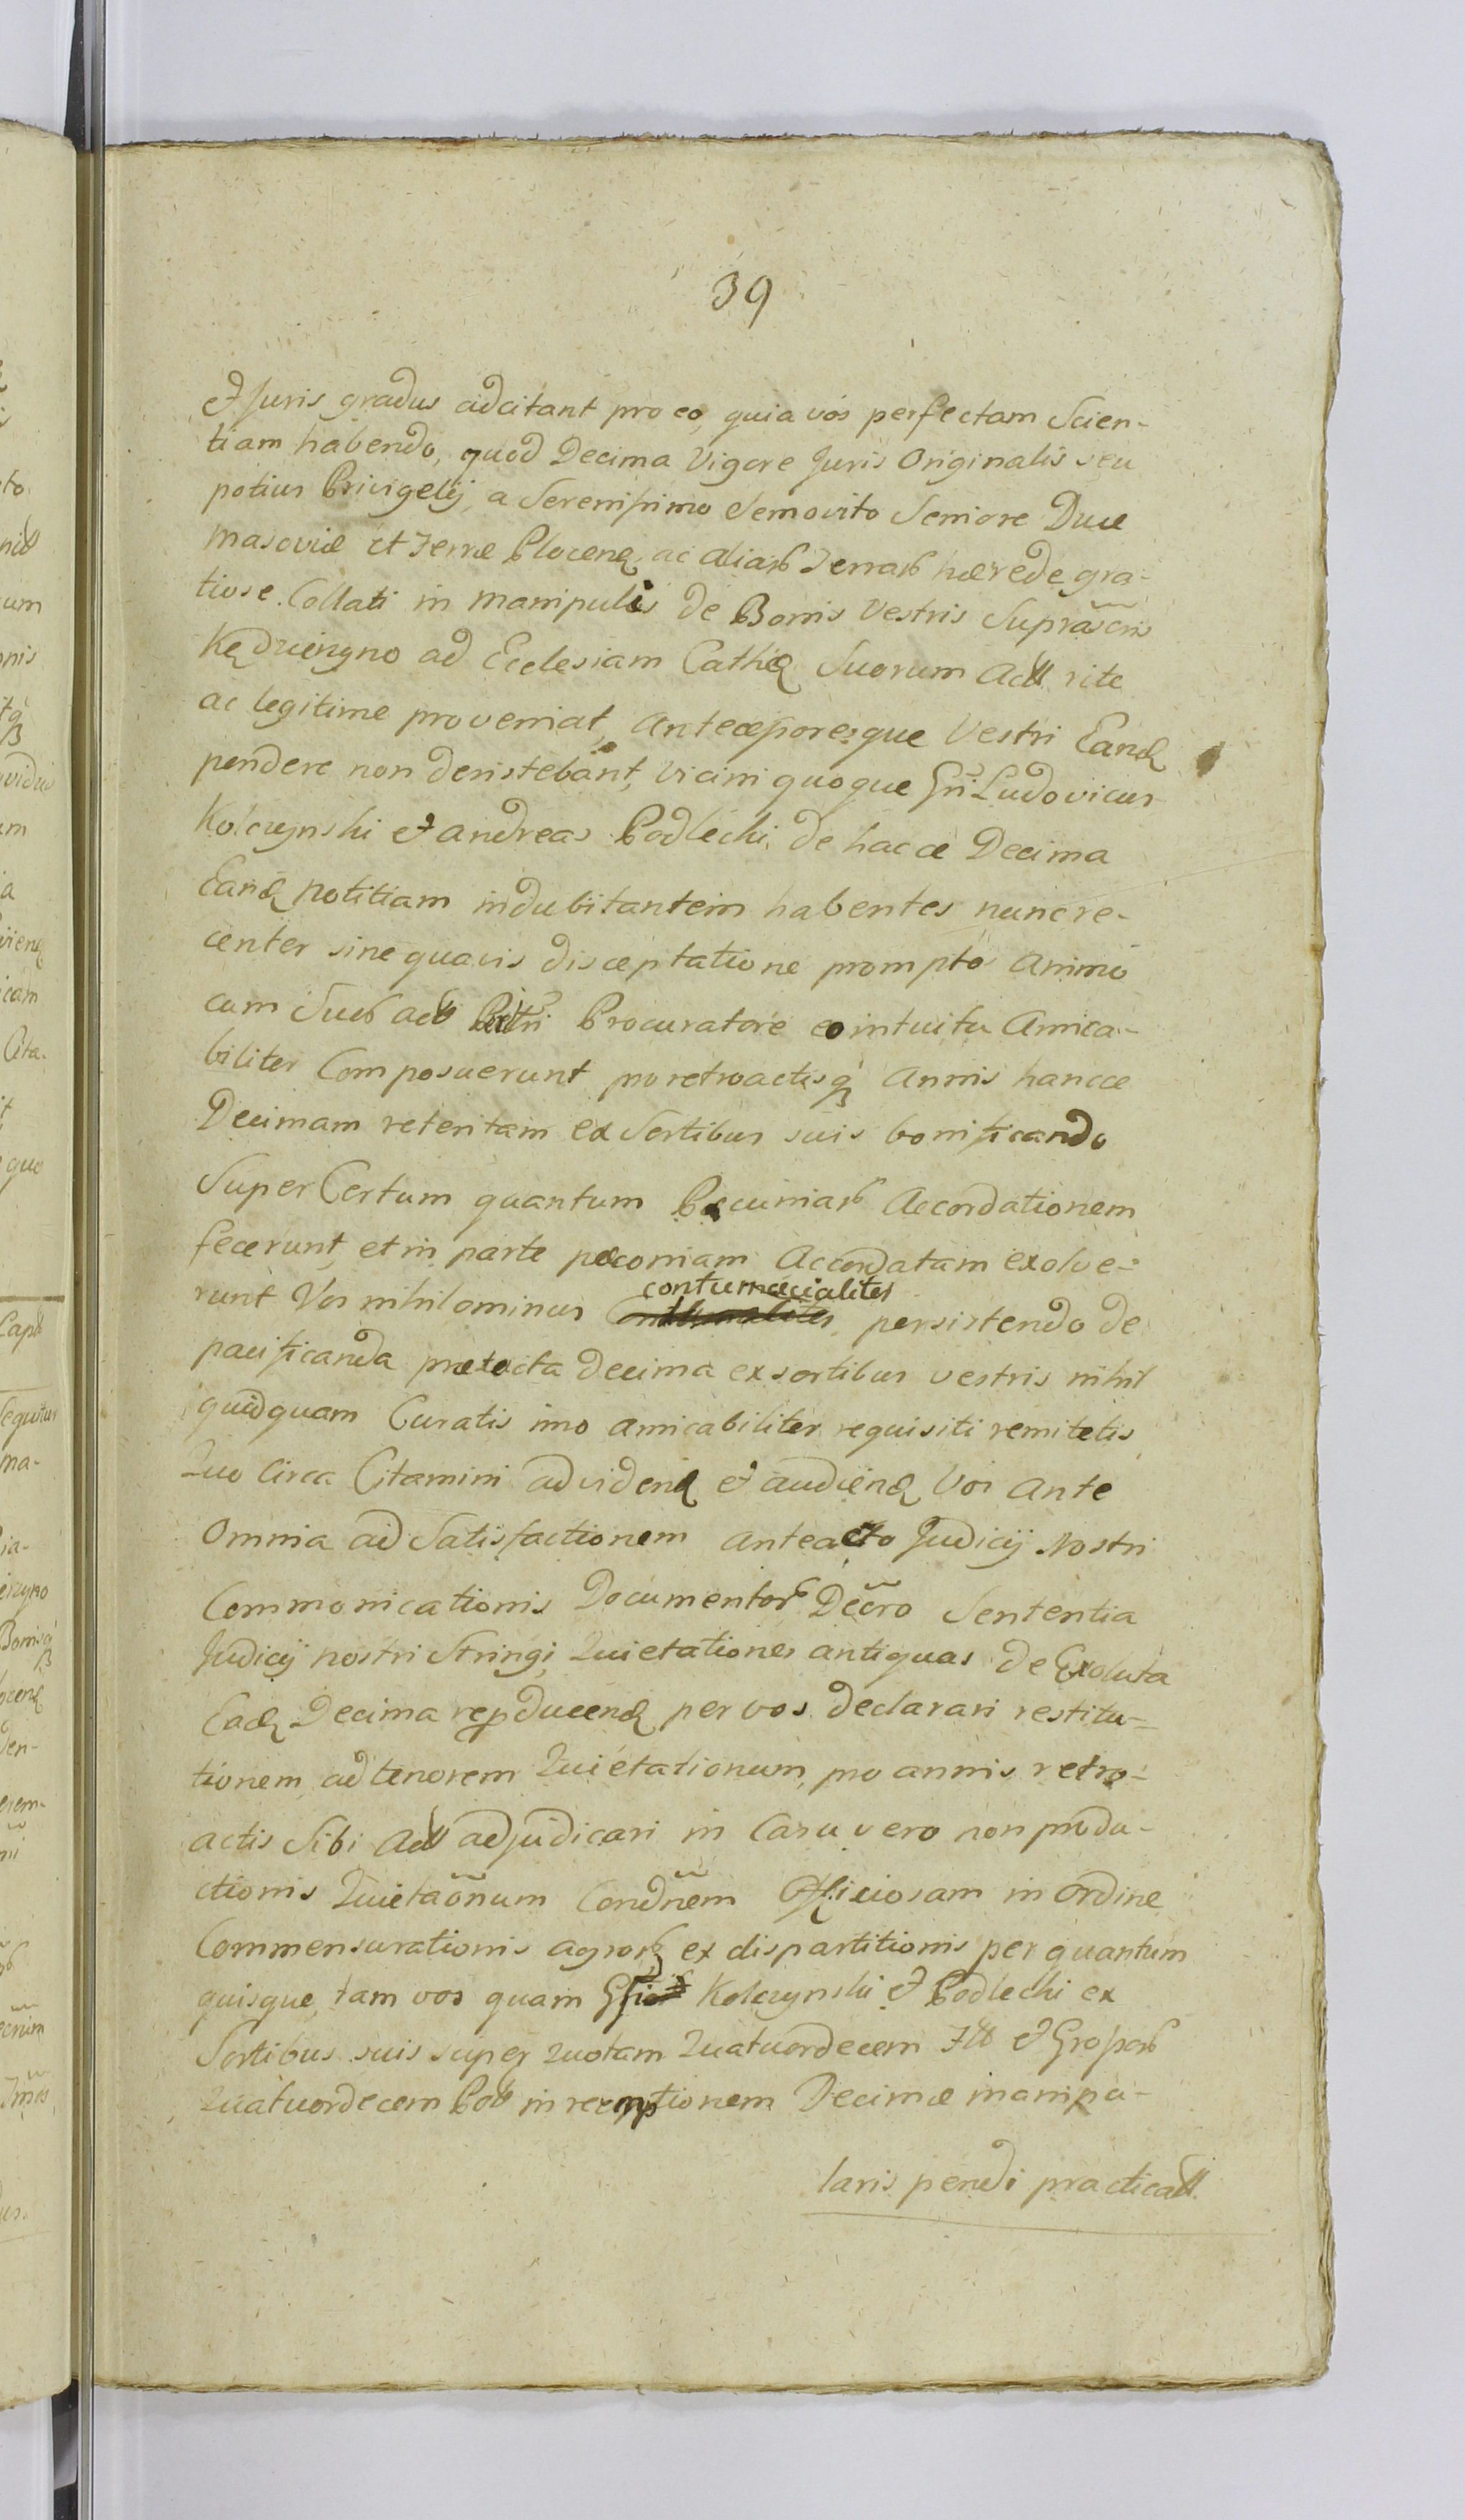 39
et Juris gradus adcitant pro eo, quia vos perfectam Scien-
tiam habendo, quod Decima Vigore Juris Originalis seu
potius Privigelij, a Serenissimo Semovito Seniore Duce
Masoviæ et Terræ Plocen. ac aliarb Terrarb hærede gra-
tiose Collati in manipulis de Bonis Vestris Suprascris
Kędzierzyno ad Ecclesiam Cathęd Suorum Actt rite
ac legitime proveniat, Antecessoresque Vestri Eand
pendere non desistebant, Vicini quoque Gn̄. Ludovicus
Kolczynski et andreas Podlecki, de hacce Decima
Eand Notitiam indubitantem habentes nunc re-
center sine quavis disceptatione prompto Animo
cum Suob actt Procuratore eo intuitu Amica-
biliter Composuerunt pro retroactisq Annis hancce
Decimam retentam ex Sortibus suis bonificando
Super Certum quantum Pæcuniarb Accordationem
fecerunt, et in parte pæconiam Accordatam exolve-
runt Vos nihilominus contumacialiter persistendo de
pacificanda prætacta decima ex sortibus vestris nihil
quidquam Curatis imo amicabiliter requisiti remitetis
Quo Circa Citamini ad videnđ et audienđ Vos Ante
Omnia ad Satisfactionem anteacto Judicij Nostri
Commonicationis Documentorb Decro Sententia
Judicij nostri Stringi, Quietationes antiquas de Exoluta
Eađ Decima repducenđ per vos declarari restitu-
tionem ad tenorem Quietationum, pro annis retro-
actis Sibi Actt adjudicari in Casu vero non produ-
ctionis Quietaōnum Condnem Officiosam in ordine
Commensurationis agrorb ex dispartitionis per quantum
quisque, tam vos quam Kolczynski et Podlecki ex
Sortibus suis super quotam Quatuordecem Ftt et Grossorb
Quatuordecem Pol in reemptionem Decimæ manipu-
laris pendi practicatt